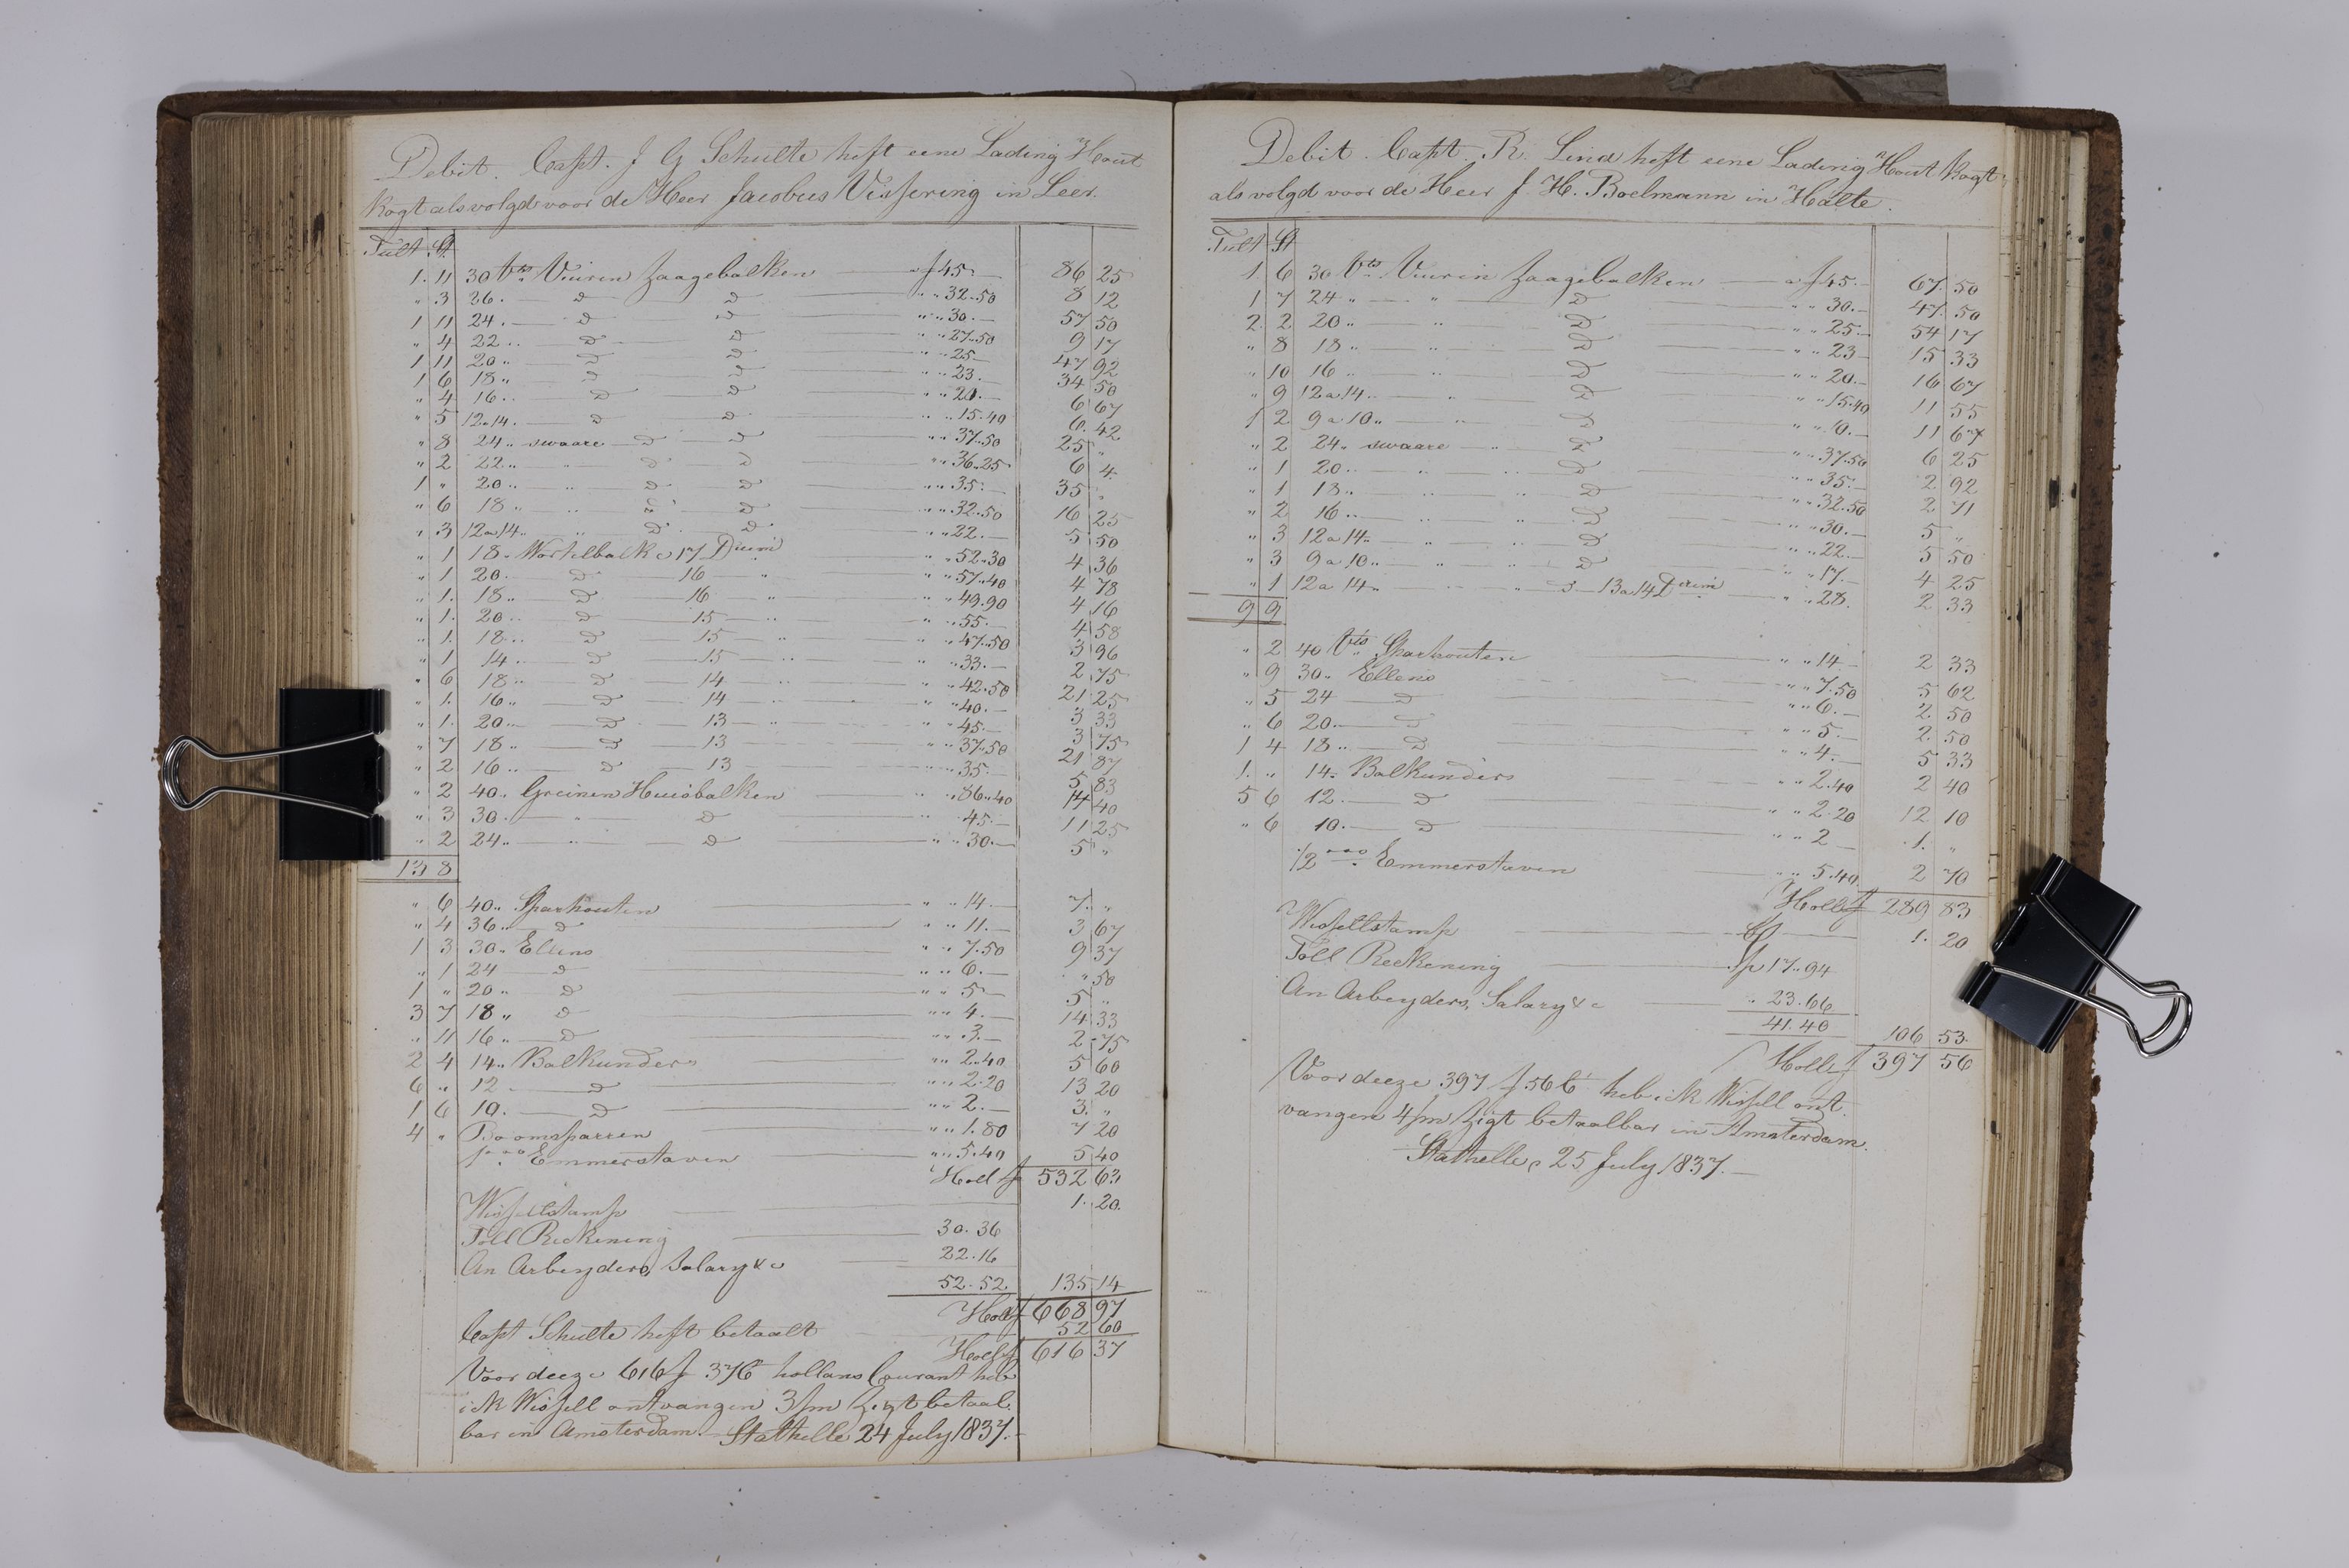 Debit. Capt. J G Schulte heft eene Lading Hout
Kogt als volgd voor de Heer Jacobus Vissering in Leer.
Tult St.
1. 11 30 vts Vuiren Zaagebalken a f 45 — 86 25
" 3 26 .. D D " " 32..50 8 12
1 11 24 .. D D " " 30.— 57 50
" 4 22 .. D D " " 27..50 9 17
1 11 20 .. D D " " 25— 47 92
1 6 18 .. D D " " 23.— 34 50
" 4 16 .. D D " " 20.— 6 67
" 5 12..14 .. D D " " 15..40 6. 42
" 8 24 .. swaare D D " " 37.50 25 "
" 2 22 .. " D D " " 36..25 6 4.
1 " 20 .. " D D " " 35.— 35 "
" 6 18 .. " D D " " 32..50 16 25
" 3 12 a 14 .. " D D " " 22.— 5 50
" 1 18 .. Wortelbalke 17 Duim " " 52..30 4 36
" 1 20 .. D 16 " " " 57..40 4 78
" 1. 18 .. D 16 " " " 49.90 4 16
" 1. 20 .. D 15 " " " 55.— 4 58
" 1. 18 .. D 15 " " " 47.50 3 96
" 1 14 .. D 15 " " " 33.— 2 75
" 6 18 .. D 14 " " " 42.50 21 25
" 1. 16 .. D 14 " " " 40.— 3 33
" 1. 20 .. D 13 " " " 45.— 3 75
" 7 18 .. D 13 " " " 37.50 21 87
" 2 16 .. D 13 " " 35.— 5 83
" 2 40 .. Greinen Huisbalken " " 86..40 14 40
" 3 30 .. " D " " 45.— 11 25
" 2 24 .. " D " " 30.— 5 "
13 8
" 6 40 .. Sparhouten " " 14.— 7. "
" 4 36 .. D " " 11.— 3 67
1 3 30 .. Ellens " " 7.50 9 37
" 1 24 D " " 6.— " 50
1 " 20 .. D " " 5— 5 "
3 7 18 .. D " " 4.— 14 33
" 11 16 .. D " " 3.— 2 75
2 4 14 .. Balkunders " " 2.40 5 60
6 " 12 D " " 2.20 13 20
1 6 10. D " " 2.— 3. "
4 " Boomsparren " " 1.80 7 20
1 000 Emmerstaven " " 5.40 5 40
Holl f 532 63
Wissellstamp 1. 20.
Toll Reckening 30. 36
An Arbeyders, Salary &c 22. 16
52. 52. 135 14
Holl f 668 97
Capt Schulte heft betaalt 52 60
Holl f 616 37
Voor deeze 616 f 37 Ct hollans Courant heb
ick Wissell ontvangen 3/m Zigt betaal.
bar in Amsterdam. Stathelle 24 July 1837.—
Debit. Capt. R. Lind heft eene Lading Hout Kogt
als volgd voor de Heer J H. Boelmann in Halte.
Tult St
1 6 30 vts Vuiren Zaagebalken a f 45.— 67. 50
1 7 24 .. " D " " 30.— 47. 50
2. 2 20 .. " D " " 25.— 54 17
" 8 18 .. " D " " 23— 15 33
" 10 16 .. " D " " 20.— 16 67
" 9 12 a 14 .. " D " " 15.40 11 55
1 2 9 a 10 .. " D " " 10.— 11 67
" 2 24 .. swaare " D " " 37.50 6 25
" 1 20 .. " " D " " 35.— 2 92
" 1 18 .. " " D " " 32.50 2 71
" 2 16 .. " " D " " 30.— 5 "
" 3 12 a 14 .. " " D " " 22.— 5 50
" 3 9 a 10 .. " " D " " 17.— 4 25
" 1 12 a 14 .. " " D 13 a 14 Duim " " 28. 2 33
9 9
" 2 40 vts Sparhouten " " 14— 2 33
" 9 30 .. Ellens " " 7.50 5 62
" 5 24 D " " 6.— 2. 50
" 6 20.— D " " 5.— 2. 50
1 4 18 .. D " " 4.— 5 33
1. " 14 .. Balkunders " " 2.40 2 40
5 6 12.— D " " 2.20 12 10
" 6 10.— D " " 2— 1. "
1/2 000 Emmerstaven " " 5.40 2 70
Holl f 289 83
Wissellstamp 1. 20
Toll Reckening Sp 17..94
An Arbeyders, Salary &c " 23.66
41. 40 106 53.
Holl f 397 56
Voor deeze 397 f 56 Ct heb ick Wissell ont.
vangen 4/m Zigt betaalbar in Amsterdam.
Stathelle 25 July 1837.—